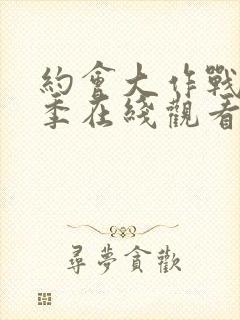 約會大作戰
季在綫觀看
尋夢貪歡